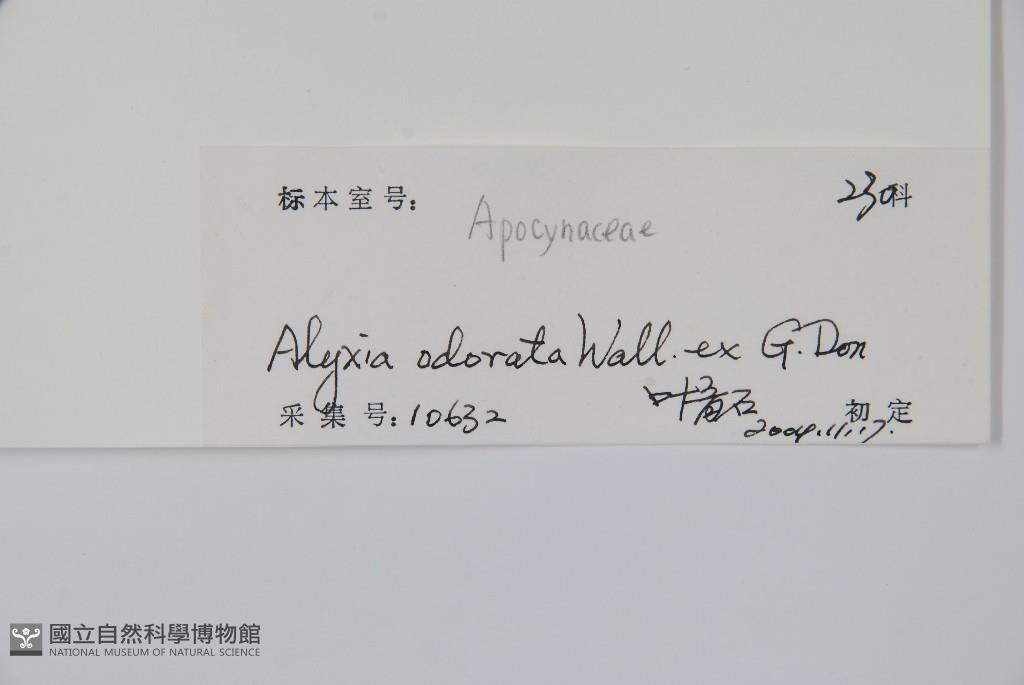 标本室号：
230科
Apocynaceae
Alyxia odorata Wall. ex G. Don
采集号：10632
叶育石 初定
2004.11.17.
國立自然科學博物館
NATIONAL MUSEUM OF NATURAL SCIENCE